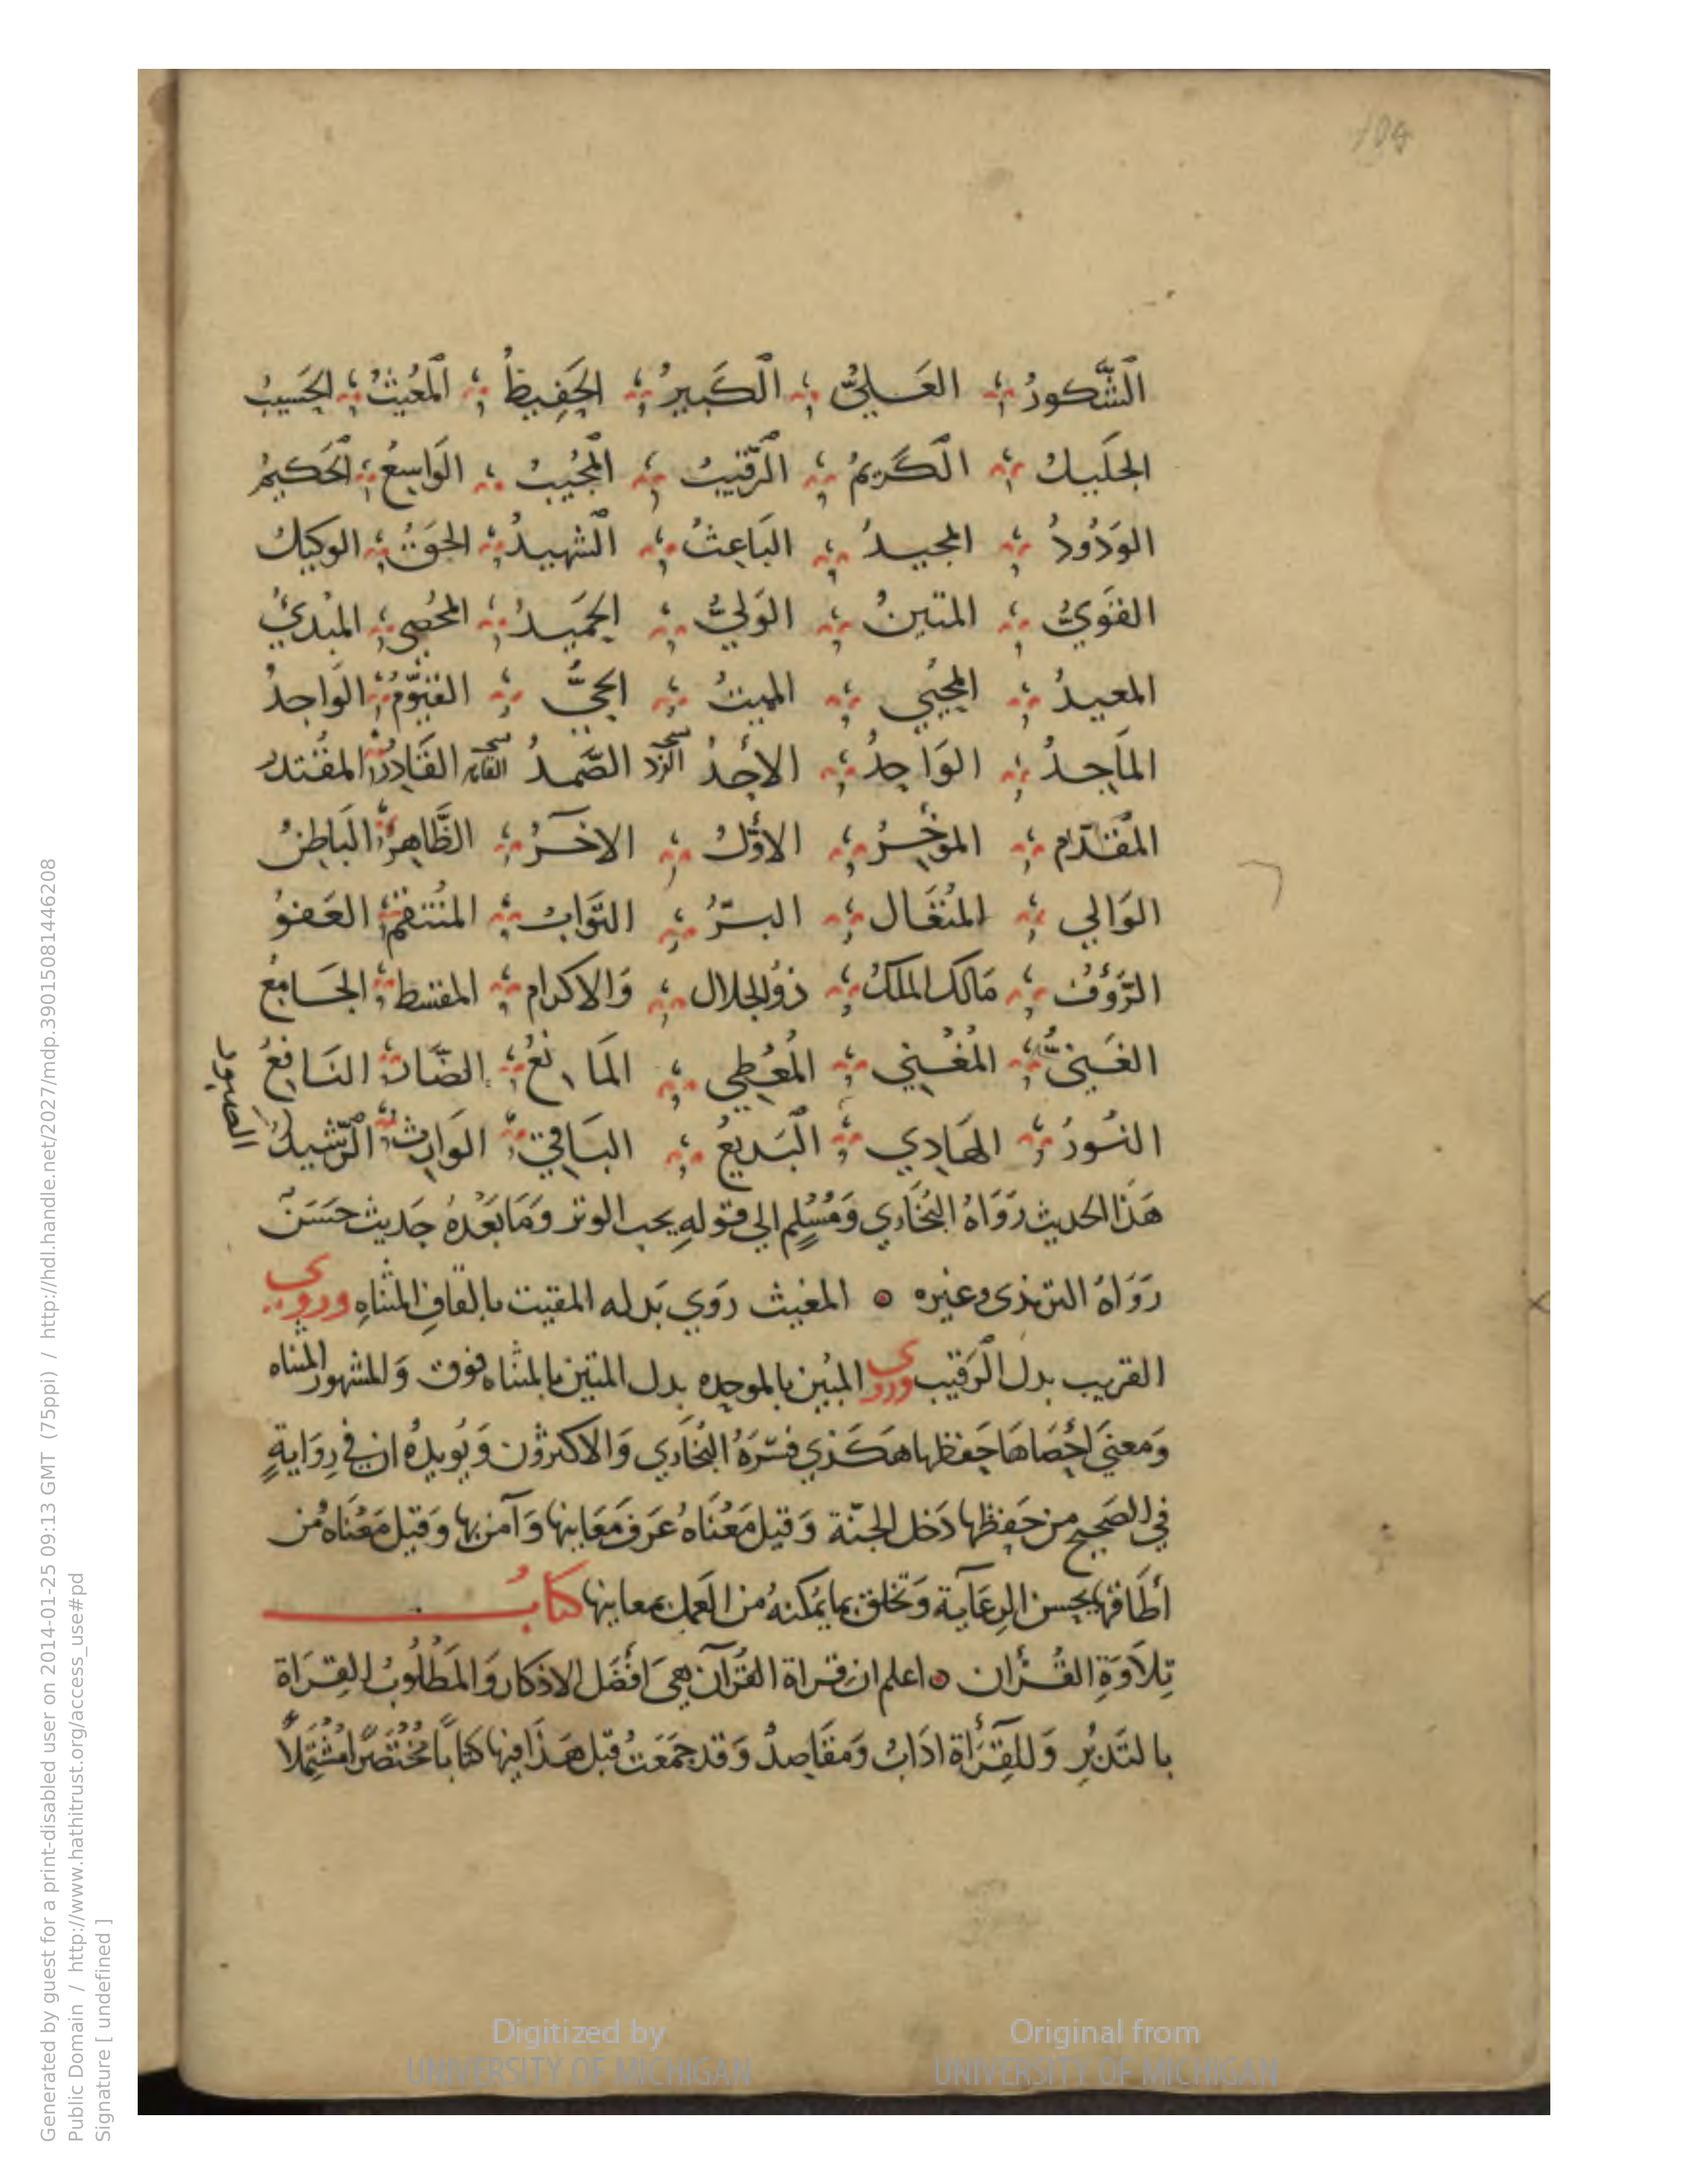 104
الشَّكورُ العَليُّ الكَبيرُ الحَفِيظُ المُغيثُ الحَسيبُ
الجَليلُ الكَريمُ الرَّقيبُ المجُيبُ الوَاسِعُ الحَكيمُ
الوَدُودُ المجيدُ البَاعِثُ الشهيدُ الحَقُّ الوكيلُ
القَويُّ المتينُ الوَليُّ الحَميدُ المحُصي المبُديُ
المعيدُ المحُيي المميتُ الحيُّ القيّومُ الوَاجدُ
المَاجدُ الوَاحِدُ الأحَدُ الصَّمدُ القَادِرُ المقُتدر
المُقدّم المؤخِّرُ الاوَّلُ الآخرُ الظَّاهِرُ البَاطِنُ
الوَالي المتُعَال البرُّ التوَّابُ المنُتقمُ العَفوُ
الرَّؤفُ مَالكُ الملكُ ذوُالجلال وَالاكرام المقسط الجَامِعُ
الغَنيُّ المُغْني المُعْطي المَانعُ الضَّارُّ النَافِعُ
النُورُ الهَادِي البَديعُ البَاقي الوَارِثُ الرَّشيدُ
الصبور
هَذَا الحديث رَوَاهُ البُخَاري وَمُسْلِم الي قولهِ يحب الوتر وَمَا بَعْدهُ حَديث حَسَنٌ
رَوَاهُ الترمذى وغيره ۝ المغيث رَوي بَدله المقيت بالقافِ المثناهِ وروى
القريب بدل الرَقيب وروى المبُين بالموحده بدل المتين بالمثناه فوق وَالمشهور المثناه
وَمعنيَ احْصَاهَا حَفظها هَكَذي فسّرَهُ البُخَاري وَالاكثرُون وَيُويدهُ ان في رِوَايةٍ
في الصَحيح من حَفِظها دَخل الجنّة وَقيل مَعْنَاهُ عَرَف مَعَانيها وَآمن بها وَقيل مَعْنَاهُ مَن
أطَاقها بحسن الرِعَاية وَتخلق بما يمُكنهُ من العَمل بمعانيها كتابُ
تِلاَوَةِ القُرْان ۝ اعلم ان قراة القُرآن هي اَفْضَل الاذكار وَالمَطْلُوبُ القِرَاة
بالتَدبُرِ وَللقِرَأة ادَابٌ وَمَقَاصِدُ وَقد جمَعَتُ قبل هَذَا فيها كتَاباً مُختُصَرًا مُشتَمِلاً
Generated by guest for a print-disabled user on 2014-01-25 09:13 GMT (75ppi) / http://hdl.handle.net/2027/mdp.39015081446208
Public Domain / http://www.hathitrust.org/access_use#pd
Signature [ undefined ]
Digitized by UNIVERSITY OF MICHIGAN
Original from UNIVERSITY OF MICHIGAN